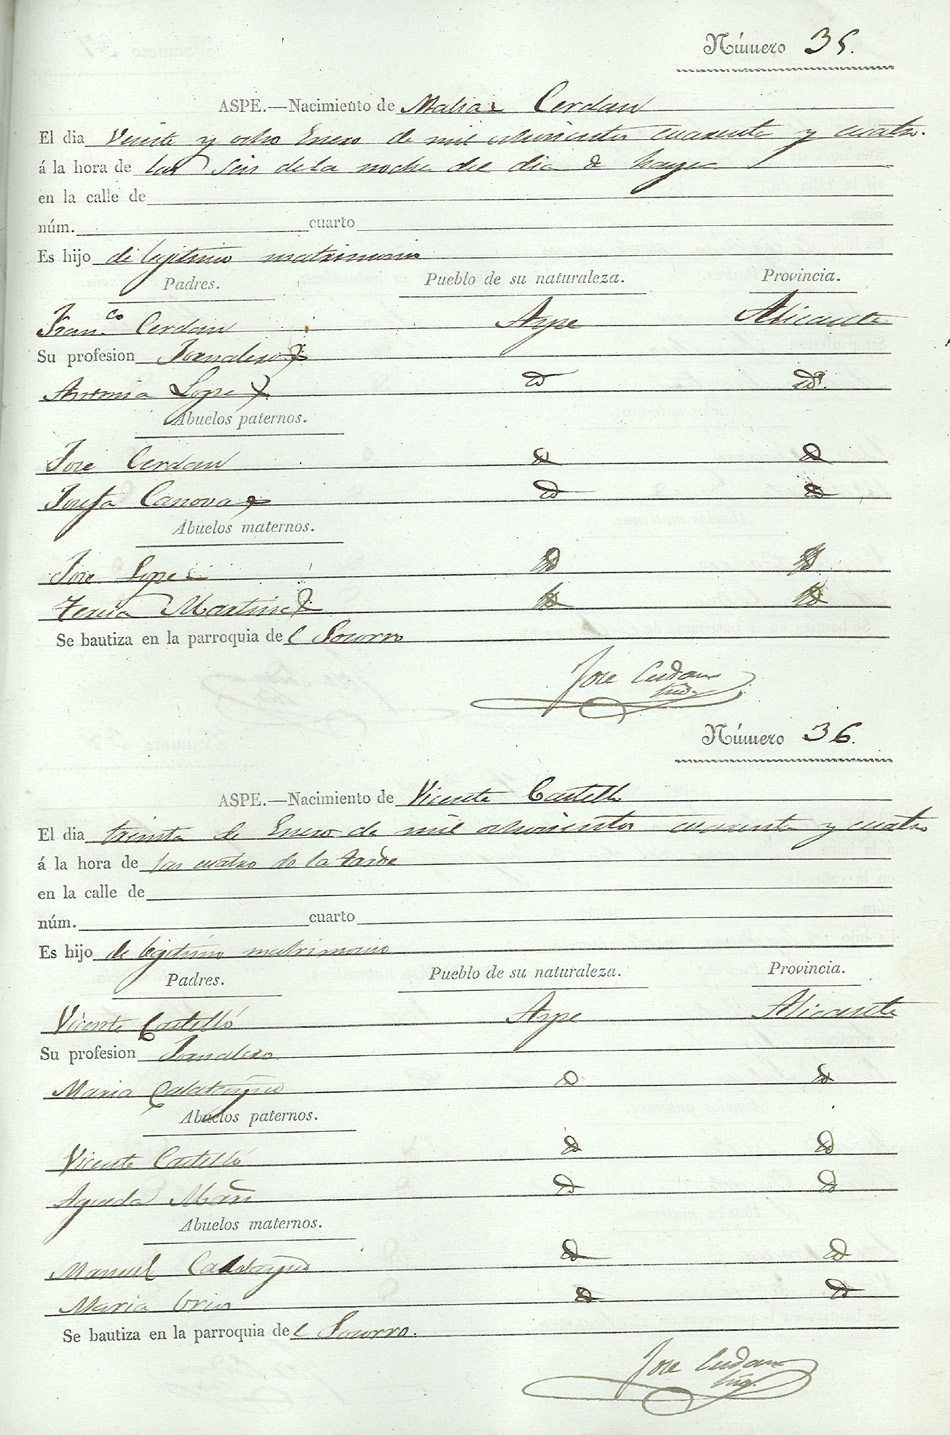 Número 35.
ASPE.—Nacimiento de Matias Cerdan
El dia Veinte y ocho Enero de mil ochocientos cuarenta y cuatro.
á la hora de las seis de la noche del dia de
en la calle de
núm. cuarto
Es hijo de legitimo matrimonio
Padres. Pueblo de su naturaleza. Provincia.
Fran.co Cerdan Aspe Alicante
Su profesion Jornalero
Antonia Lopez id id
Abuelos paternos.
Jose Cerdan id id
Josefa Canovas id id
Abuelos maternos.
Jose Lopez id id
Teresa Martinez id id
Se bautiza en la parroquia del Socorro
Jose Cerdan
Número 36.
ASPE.—Nacimiento de Vicente Castelló
El dia treinta de Enero de mil ochocientos cuarenta y cuatro
á la hora de las cuatro de la tarde
en la calle de
núm. cuarto
Es hijo de legitimo matrimonio
Padres. Pueblo de su naturaleza. Provincia.
Vicente Castelló Aspe Alicante
Su profesion Jornalero
Maria Calatayud id id
Abuelos paternos.
Vicente Castelló id id
Agueda id id
Abuelos maternos.
Manuel Calatayud id id
Maria id id
Se bautiza en la parroquia del Socorro.
Jose Cerdan